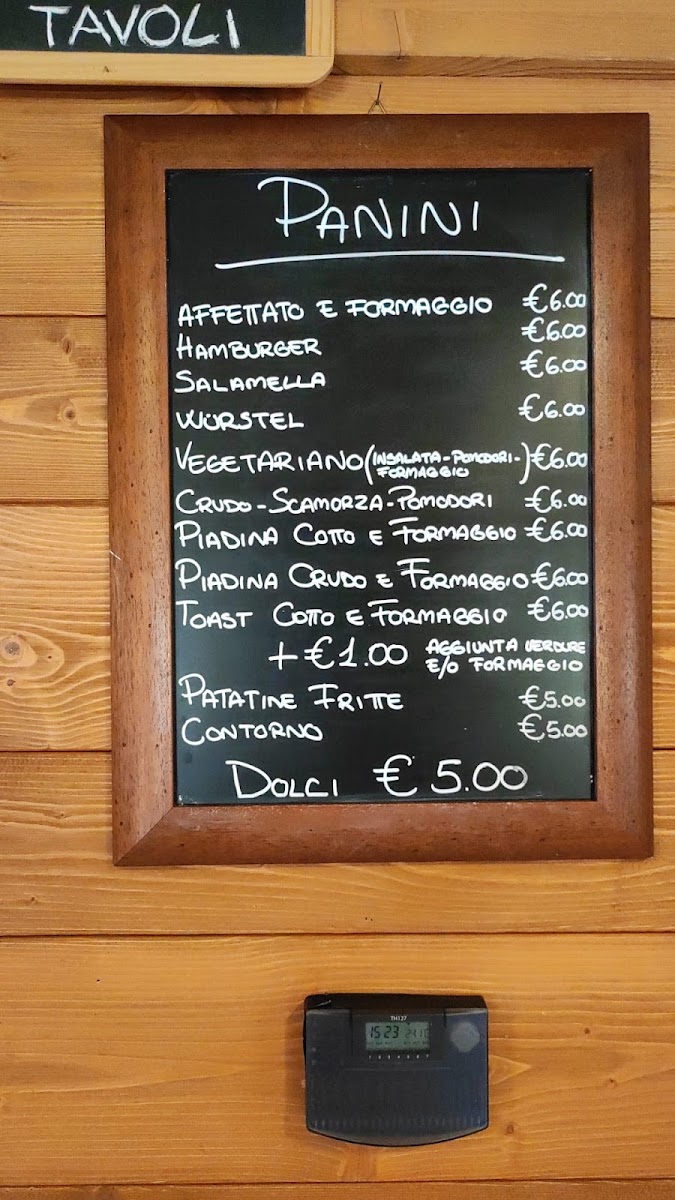 TAVOLI
PANINI
AFFETTATO E FORMAGGIO €6.00
HAMBURGER €6.00
SALAMELLA €6.00
WÜRSTEL €6.00
VEGETARIANO (INSALATA-POMODORI-FORMAGGIO) €6.00
CRUDO-SCAMORZA-POMODORI €6.00
PIADINA COTTO E FORMAGGIO €6.00
PIADINA CRUDO E FORMAGGIO €6.00
TOAST COTTO E FORMAGGIO €6.00
+€1.00 AGGIUNTA VERDURE
E/O FORMAGGIO
PATATINE FRITTE €5.00
CONTORNO €5.00
DOLCI €5.00
TH127
15 23
1 2 3 4 5 6 7